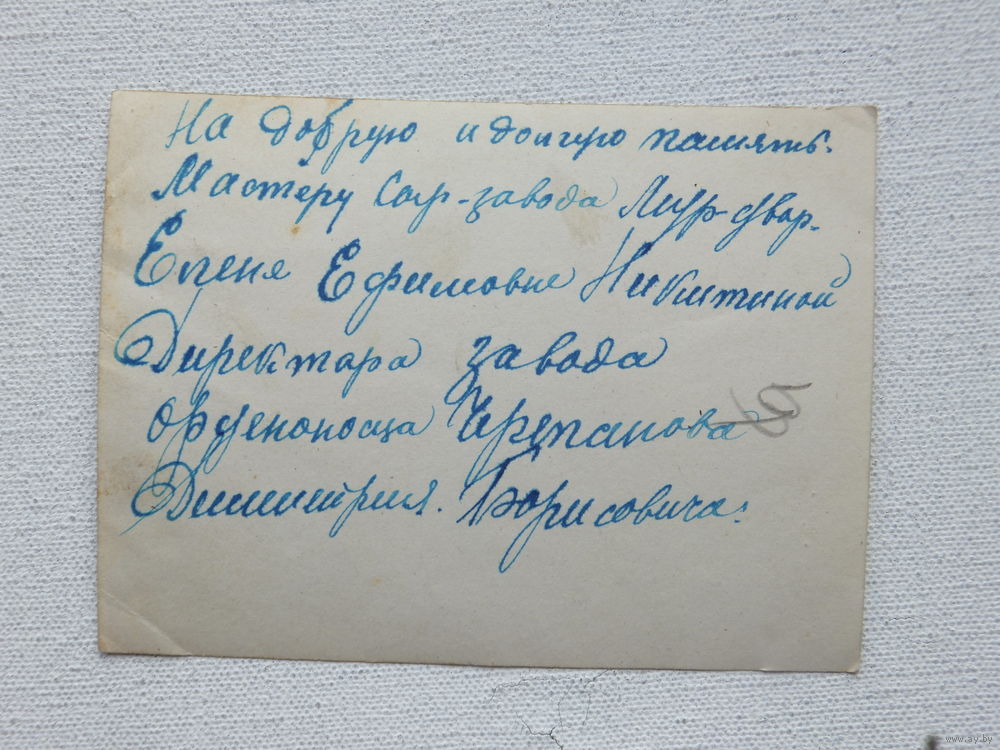 На добрую и долгую память.
Мастеру Сыр-завода двор.
Елене Ефимовне Никитиной
Директора завода
Орденоносца Черепанова
Димитрия. Борисовича.
www.ay.by